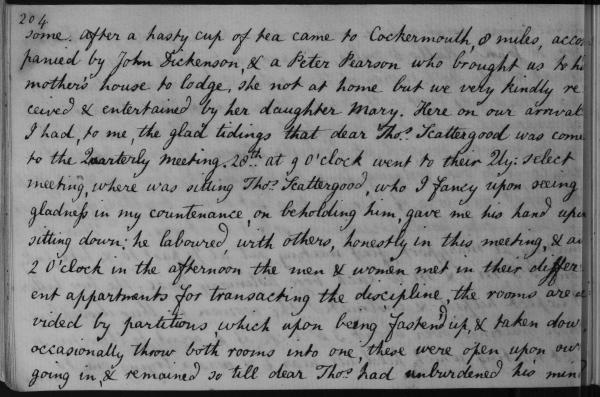 204
some. after a hasty cup of tea came to Cockermouth, 8 miles, accom
panied by John Dickenson, & a Peter Pearson who brought us to his
mother's house to lodge, she not at home but we very kindly re
ceived & entertained by her daughter Mary. Here on our arrival
I had, to me, the glad tidings that dear Thos. Scattergood was come
to the Quarterly meeting. 28th. at 9 O'clock went to their Qly: select
meeting, where was sitting Thos. Scattergood, who I fancy upon seeing
gladness in my countenance, on beholding him, gave me his hand upon
sitting down; he laboured, with others, honestly in this meeting, & at
2 O'clock in the afternoon the men & women met in their differ
ent appartments for transacting the discipline, the rooms are di
vided by partitions, which upon being fasten'd up, & taken down
occasionally throw both rooms into one, these were open upon our
going in, & remained so till dear Thos. had unburdened his mind